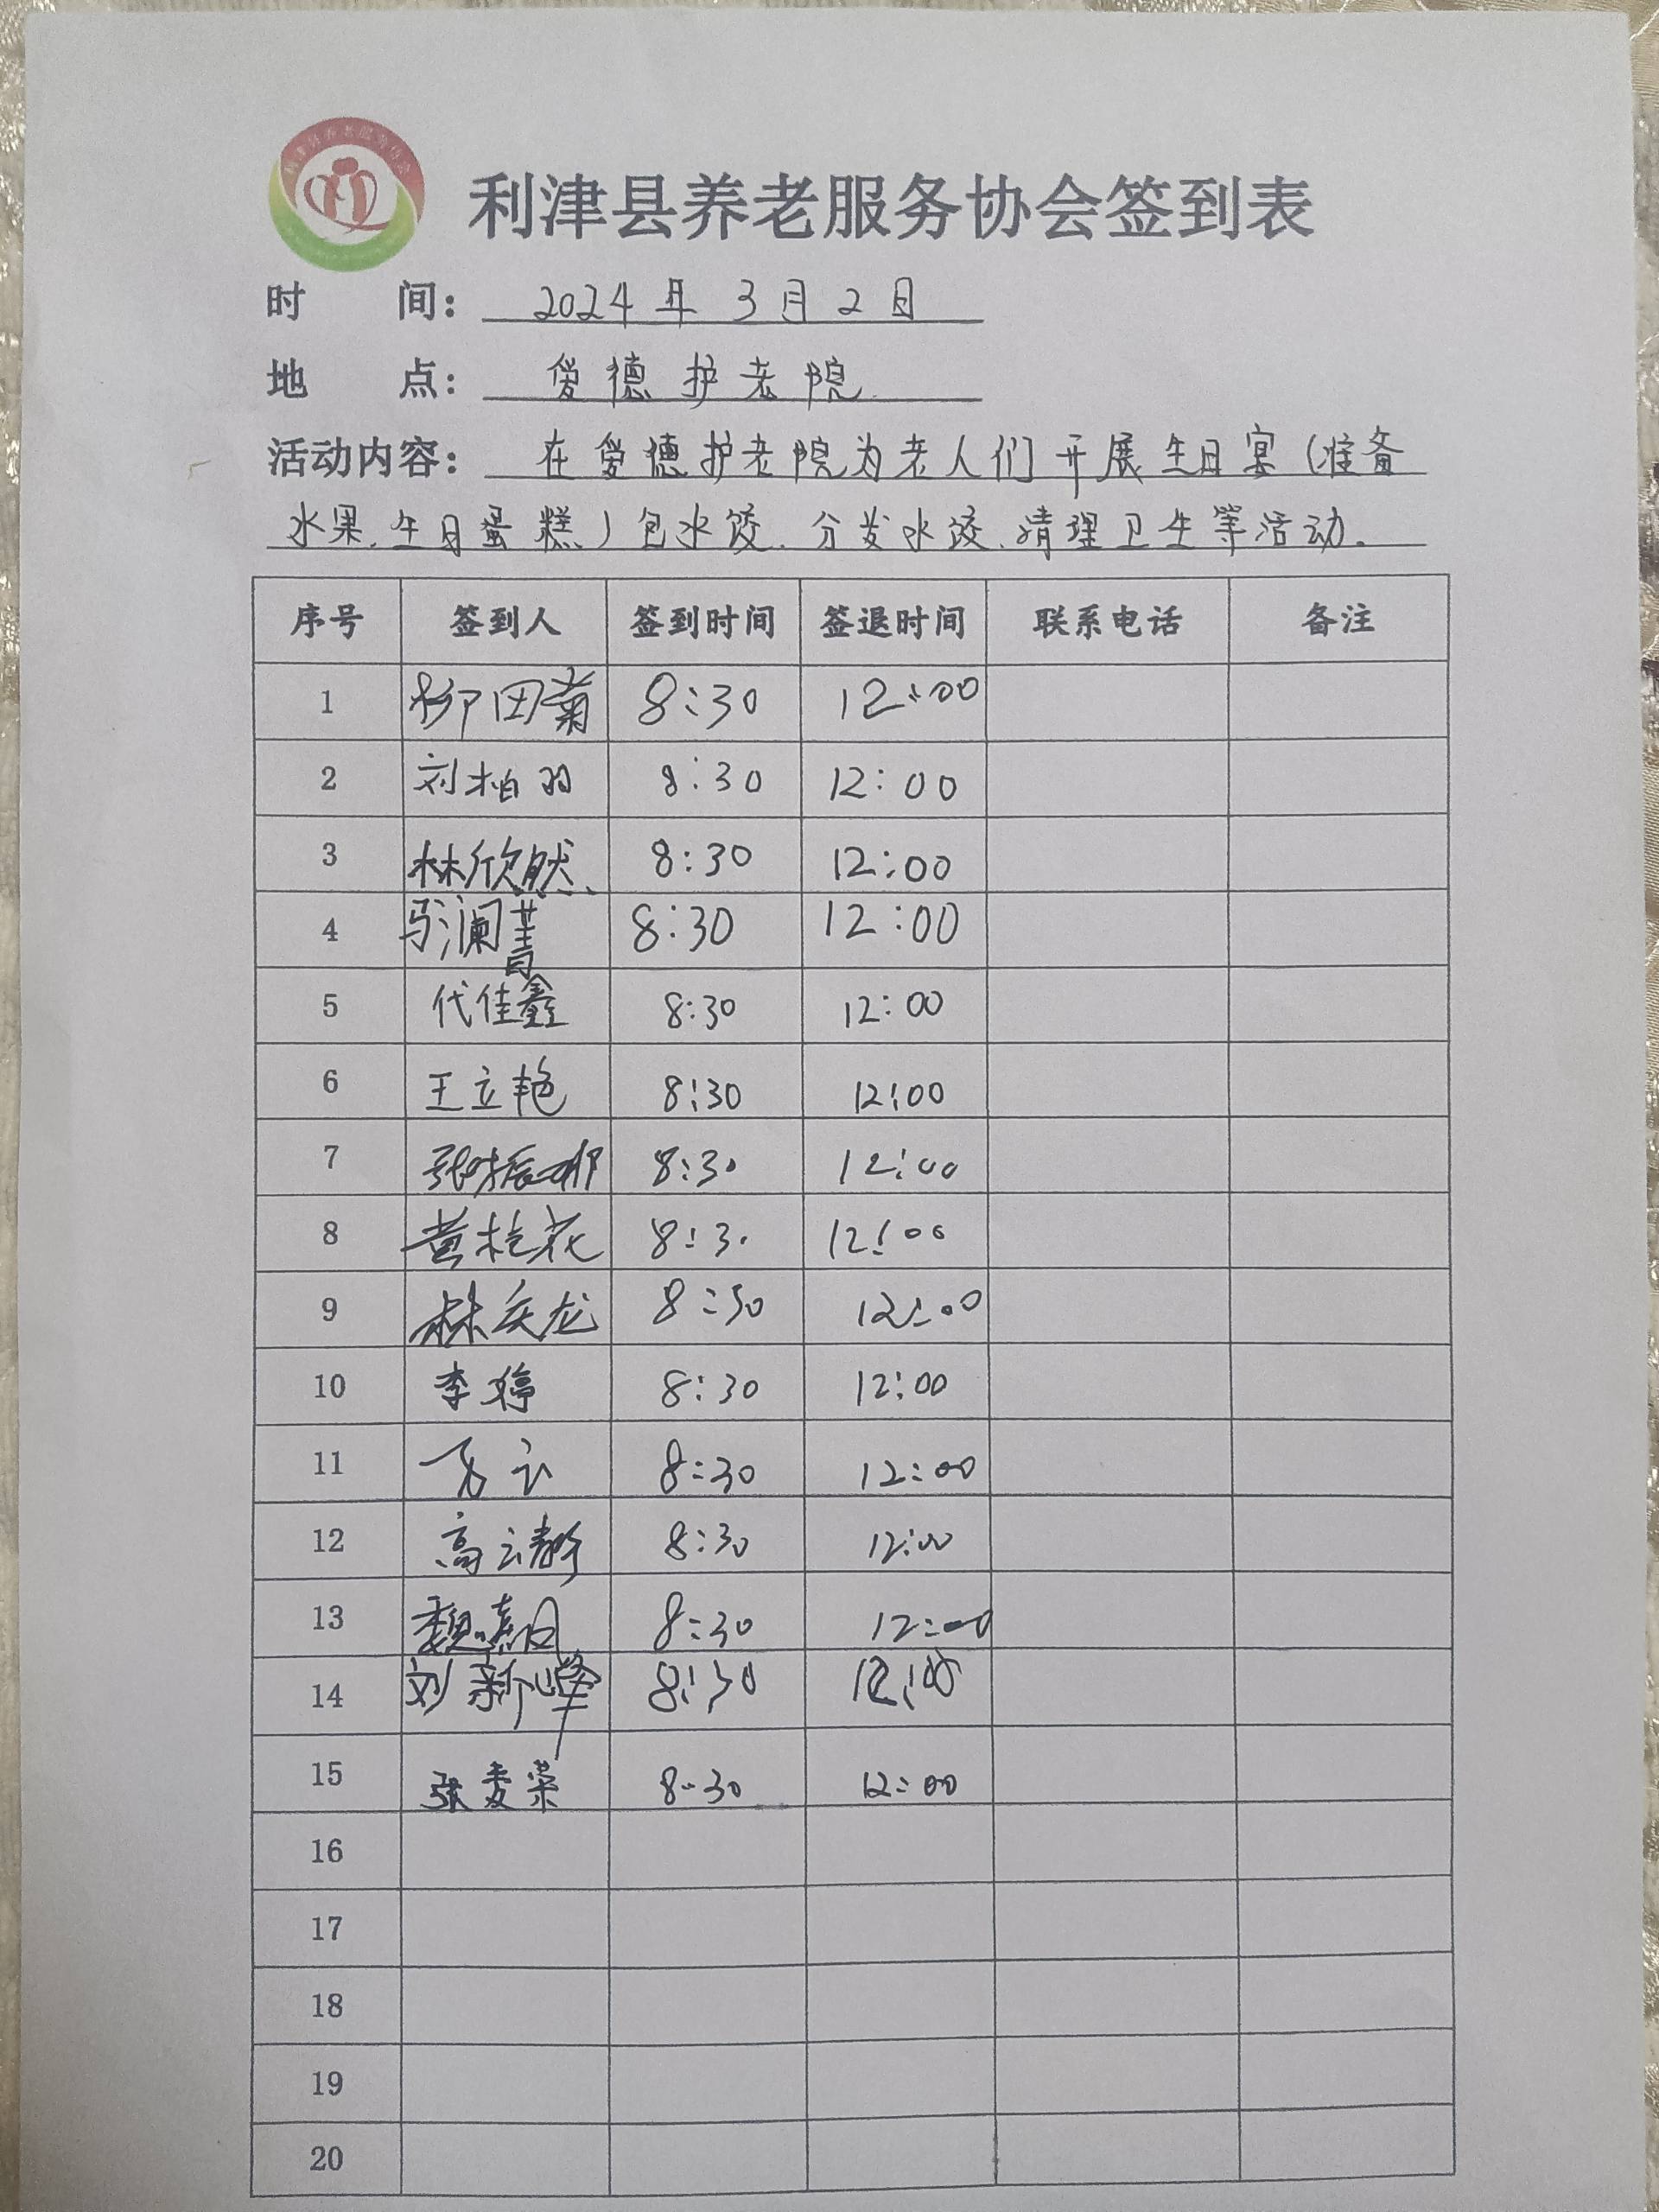 利津县养老服务协会
利津县养老服务协会签到表
时 间： 2024年3月2日
地 点： 爱德护老院
活动内容： 在爱德护老院为老人们开展生日宴（准备
水果、生日蛋糕）包水饺、分发水饺、清理卫生等活动。
序号 签到人 签到时间 签退时间 联系电话 备注
1 柳田菊 8:30 12:00
2 刘柏羽 8:30 12:00
3 林欣然 8:30 12:00
4 澜菁 8:30 12:00
5 代佳鑫 8:30 12:00
6 王立艳 8:30 12:00
7 张振娜 8:30 12:00
8 黄桂花 8:30 12:00
9 林庆龙 8:30 12:00
10 李婷 8:30 12:00
11 云 8:30 12:00
12 高云静 8:30 12:00
13 魏 8:30 12:00
14 刘新峰 8:30 12:00
15 张麦荣 8:30 12:00
16
17
18
19
20